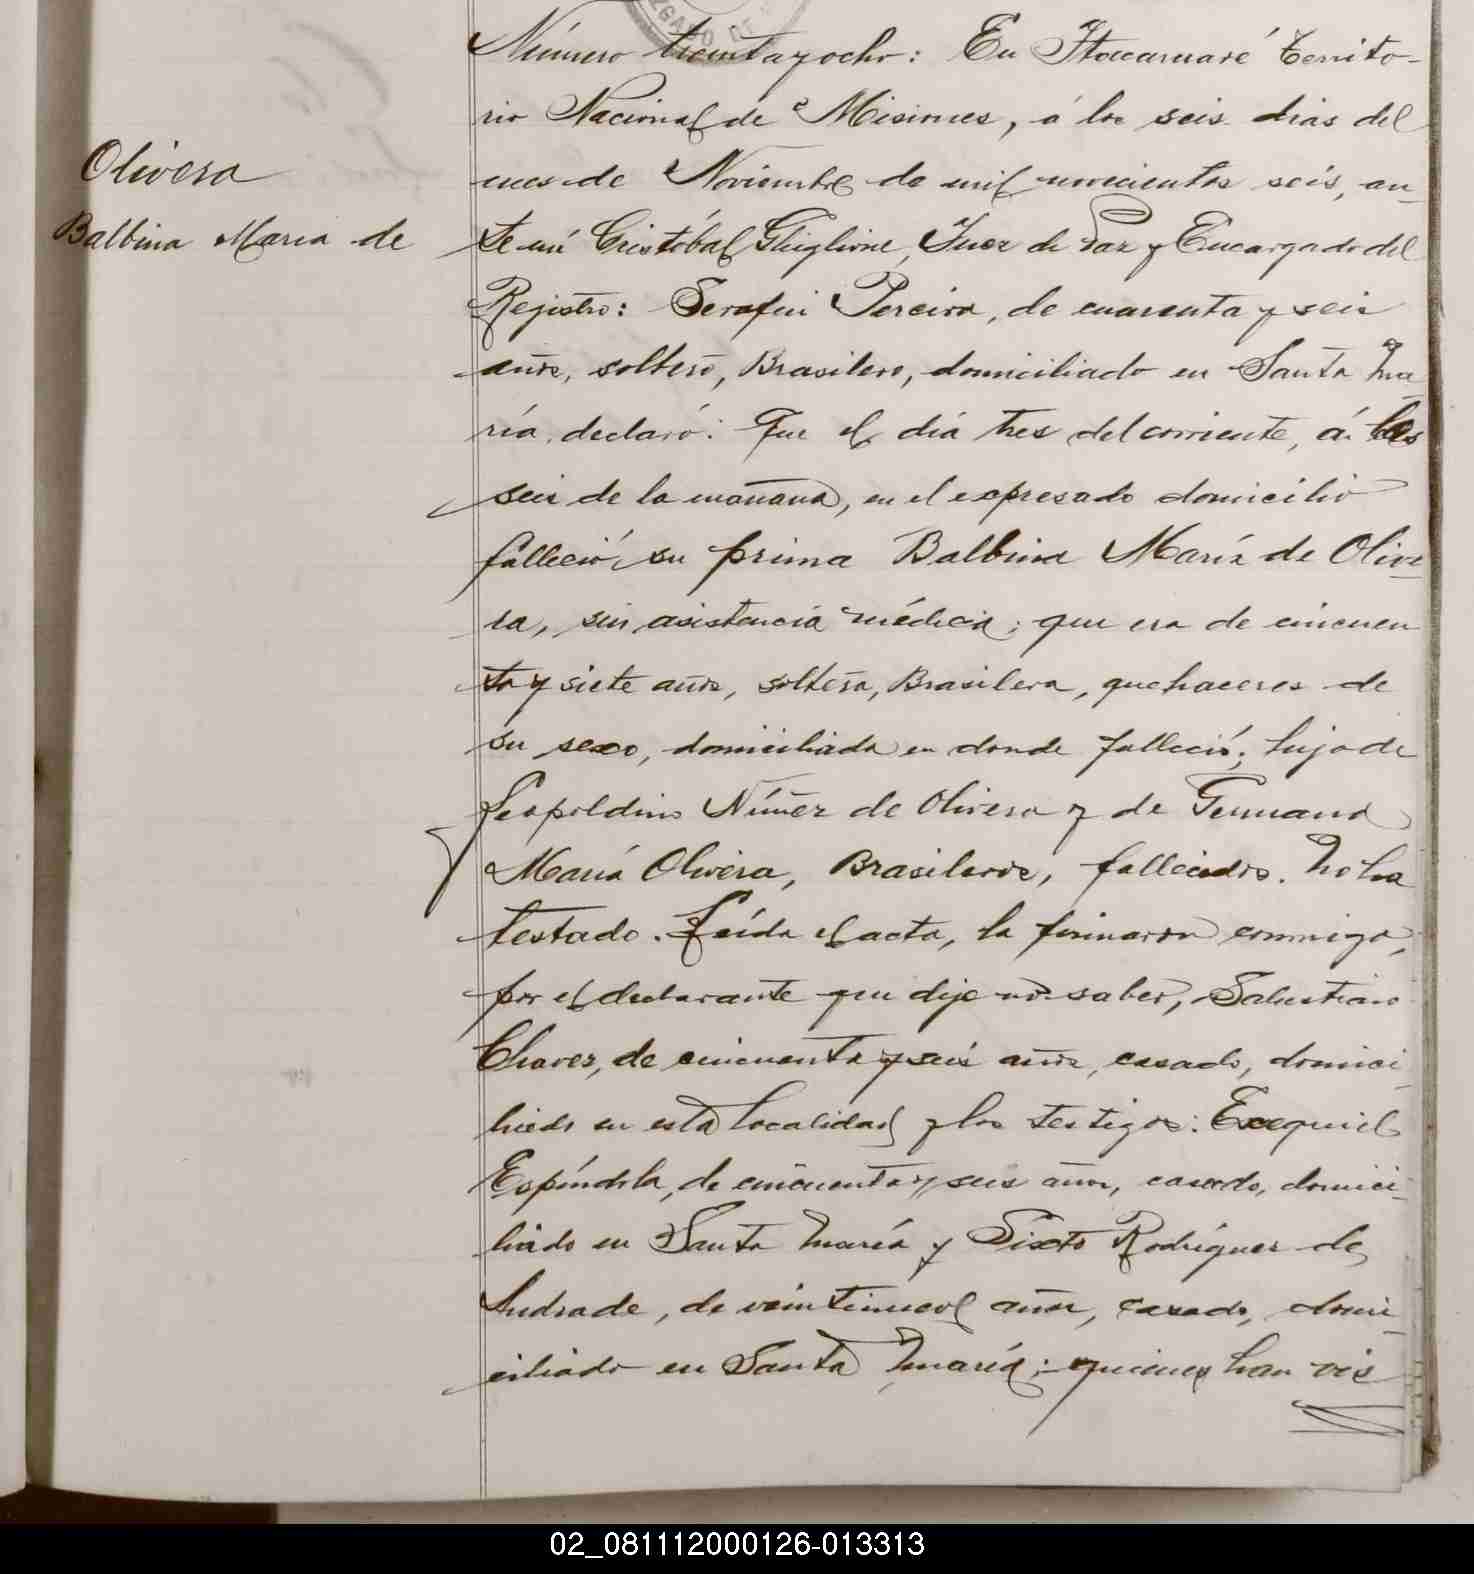 Olivera
Balbina Maria de
Número treinta y ocho: En Itacaruaré Territo-
rio Nacional de Misiones, á los seis dias del
mes de Noviembre de mil novecientos seis, an-
te mí Cristóbal Ghiglione, Juez de Paz y Encargado del
Registro: Serafin Pereira, de cuarenta y seis
años, soltero, Brasilero, domiciliado en Santa Ma-
ría, declaró: Que el día tres del corriente, á las
seis de la mañana, en el expresado domicilio
falleció su prima Balbina María de Olive-
ra, sin asistencia médica; que era de cincuen
ta y siete años, soltera, Brasilera, quehaceres de
su sexo, domiciliada en donde falleció; hija de
Leopoldino Núñez de Olivera y de Germana
María Olivera, Brasileros, fallecidos. No ha
testado. Leída el acta, la firmaron conmigo,
por el declarante que dijo no saber, Salustiano
Chaves, de cincuenta y seis años, casado, domici-
liado en esta localidad y los testigos: Exequiel
Espíndola, de cincuenta y seis años, casado, domici-
liado en Santa María y Sixto Rodríguez de
Andrade, de veintinueve años, casado, domi-
ciliado en Santa María; quienes han vis
02_081112000126-013313